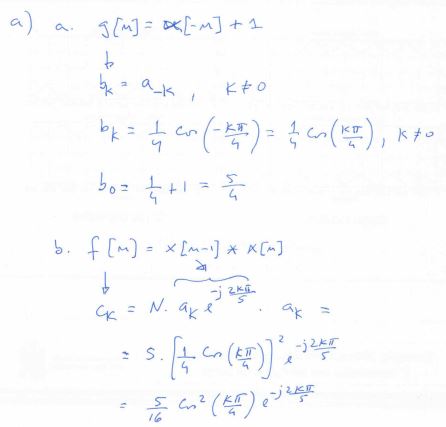 a) a. g[n] = x[-n] + 1
↓
b_k = a_-k , k ≠ 0
b_k = 1/4 cos(-kπ/4) = 1/4 cos(kπ/4), k ≠ 0
b_0 = 1/4 + 1 = 5/4
b. f[n] = x[n-1] * x[n]
↓
c_k = N. a_k e^(-j 2kπ/5) . a_k =
= 5. [1/4 cos(kπ/4)]^2 e^(-j2kπ/5)
= 5/16 cos^2(kπ/4) e^(-j2kπ/5)